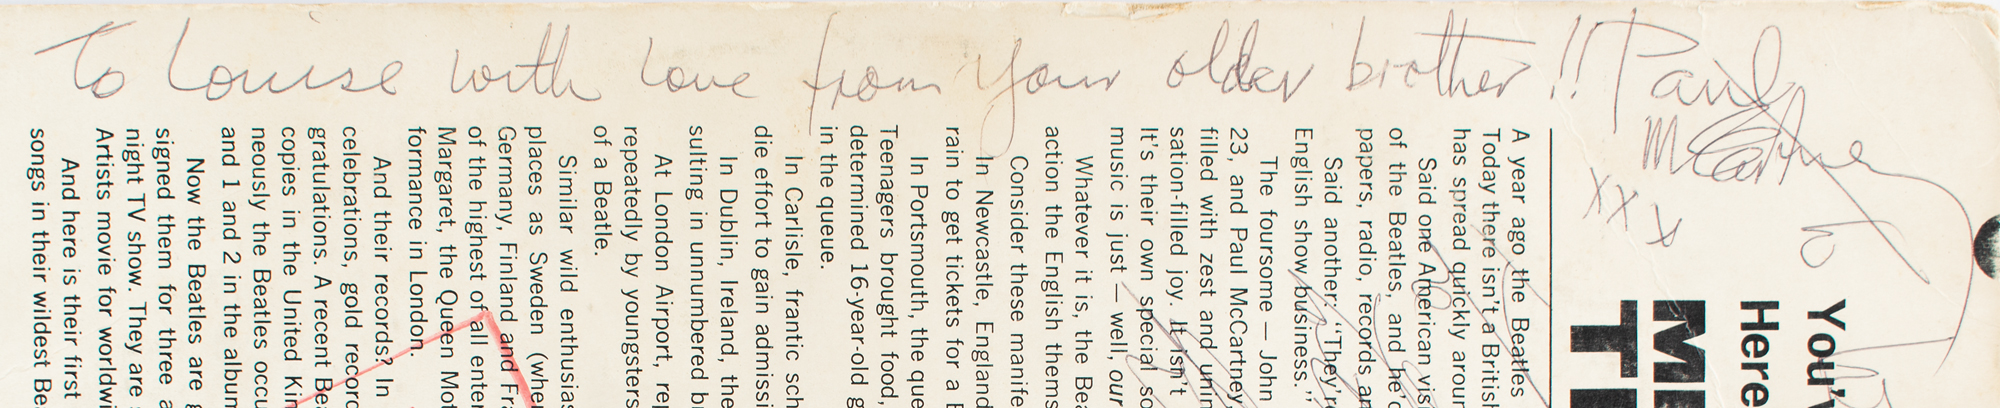 To Louise with love from your older brother!! Paul
McCartney
xxx
You'v
Here
A year ago the Beatles
Today there isn't a British
has spread quickly aroun
Said one American visi
of the Beatles, and he'd
papers, radio, records an
Said another: "They're
English show business,"
The foursome — John
23, and Paul McCartney,
filled with zest and unin
sation-filled joy. It isn't
It's their own special so
music is just — well, our
Whatever it is, the Bea
action the English thems
Consider these manife
In Newcastle, England
rain to get tickets for a B
In Portsmouth, the que
Teenagers brought food,
determined 16-year-old g
in the queue.
In Carlisle, frantic sch
die effort to gain admissi
In Dublin, Ireland, the
sulting in unnumbered br
At London Airport, rep
repeatedly by youngsters
of a Beatle.
Similar wild enthusias
places as Sweden (wher
Germany, Finland and Fra
of the highest of all enter
Margaret, the Queen Mot
formance in London.
And their records? In
celebrations, gold record
gratulations. A recent Bea
copies in the United Kin
neously the Beatles occu
and 1 and 2 in the album
Now the Beatles are g
signed them for three a
night TV show. They are
Artists movie for worldwi
And here is their first
songs in their wildest Bea